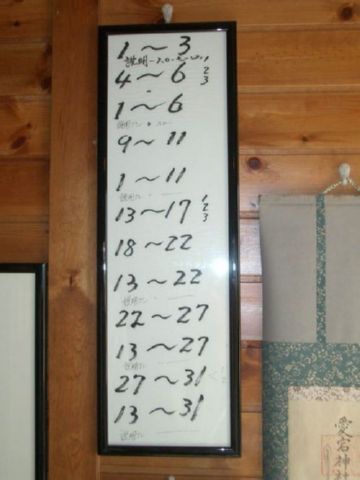 1〜3
説明
4〜6 2
3
1〜6
説明
9〜11
1〜11
説明
13〜17 1
2
3
18〜22
13〜22
説明
22〜27
13〜27
説明
27〜31
13〜31
説明
愛宕神社